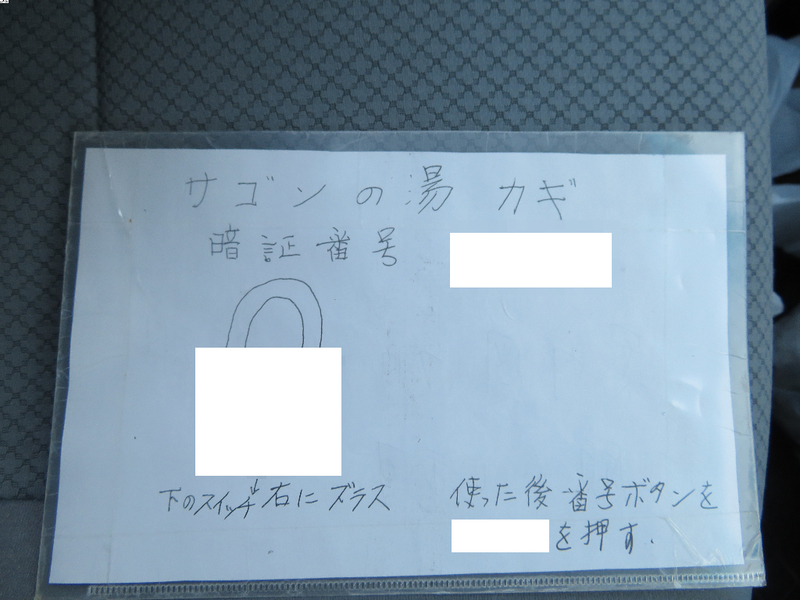 サゴンの湯 カギ
暗証番号
下のスイッチ右にズラス
使った後番号ボタンを
を押す.